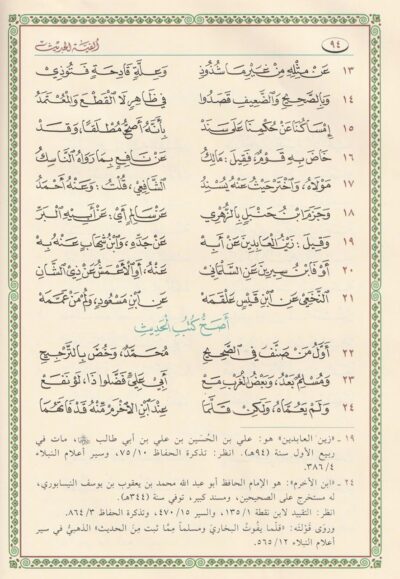 ٩٤ ألفية الحديث
١٣ عَنْ مِثْلِهِ مِنْ غَيْرِ مَا شُذُوذِ وَعِلَّةٍ قَادِحَةٍ فَتُوذِي
١٤ وَبِالصَّحِيحِ وَالضَّعِيفِ قَصَدُوا فِي ظَاهِرٍ لَا الْقَطْعَ وَالْمُعْتَمَدُ
١٥ إِمْسَاكُنَا عَنْ حُكْمِنَا عَلَى سَنَدْ بِأَنَّهُ أَصَحُّ مُطْلَقًا، وَقَدْ
١٦ خَاضَ بِهِ قَوْمٌ فَقِيلَ: مَالِكُ عَنْ نَافِعٍ بِمَا رَوَاهُ النَّاسِكُ
١٧ مَوْلَاهُ، وَاخْتَرْ حَيْثُ عَنْهُ يُسْنِدُ الشَّافِعِي، قُلْتُ: وَعَنْهُ أَحْمَدُ
١٨ وَجَزَمَ ابْنُ حَنْبَلٍ بِالزُّهْرِي عَنْ سَالِمٍ أَيْ: عَنْ أَبِيهِ الْبَرِّ
١٩ وَقِيلَ: زَيْنُ الْعَابِدِينَ عَنْ أَبِهْ عَنْ جَدِّهِ، وَابْنُ شِهَابٍ عَنْهُ بِهْ
٢٠ أَوْ فَابْنُ سِيرِينَ عَنِ السَّلْمَانِي عَنْهُ، أَوِ الْأَعْمَشُ عَنْ ذِي الشَّانِ
٢١ النَّخَعِي عَنِ ابْنِ قَيْسٍ عَلْقَمَهْ عَنِ ابْنِ مَسْعُودٍ، وَلُمْ مَنْ عَمَّمَهْ
أَصَحُّ كُتُبِ الْحَدِيثِ
٢٢ أَوَّلُ مَنْ صَنَّفَ فِي الصَّحِيحِ مُحَمَّدٌ، وَخُصَّ بِالتَّرْجِيحِ
٢٣ وَمُسْلِمٌ بَعْدُ، وَبَعْضُ الْغَرْبِ مَعْ أَبِي عَلِيٍّ فَضَّلُوا ذَا، لَوْ نَفَعْ
٢٤ وَلَمْ يَعُمَّاهُ، وَلَكِنْ قَلَّمَا عِنْدَ ابْنِ الْأَخْرَمِ مِنْهُ قَدْ فَاتَهُمَا
١٩ - «زين العابدين» هو: علي بن الحُسَين بن علي بن أبي طالب ، مات في
ربيع الأول سنة (٩٤هـ). انظر: تذكرة الحفاظ ٧٥/١٠، وسير أعلام النبلاء
٣٨٦/٤.
٢٤ - «ابن الأخرم»: هو: الإمام الحافظ أبو عبد الله محمد بن يعقوب بن يوسف النيسابوري،
له مستخرج على الصحيحين، ومسند كبير، توفي سنة (٣٤٤هـ).
انظر: التقييد لابن نقطة ١٣٥/١، والسير ٤٧٠/١٥، وتذكرة الحفاظ ٨٦٤/٣.
وروى قَوْلَته: «قلَّما يفُوتُ البخاري ومسلماً ممَّا ثبت مِنَ الحديث» الذهبيُّ في سير
أعلام النبلاء ٥٦٥/١٢.